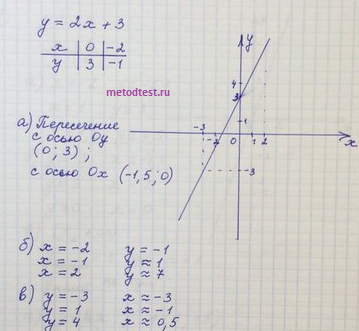 y = 2x + 3
x | 0 | -2
y | 3 | -1
metodtest.ru
а) Пересечение
с осью Oy
(0; 3) ;
с осью Ox (-1,5; 0)
y
4
3
1
-3
-2
0
1
2
x
-3
б) x = -2 y = -1
x = -1 y ≈ 1
x = 2 y ≈ 7
в) y = -3 x ≈ -3
y = 1 x ≈ -1
y = 4 x ≈ 0,5